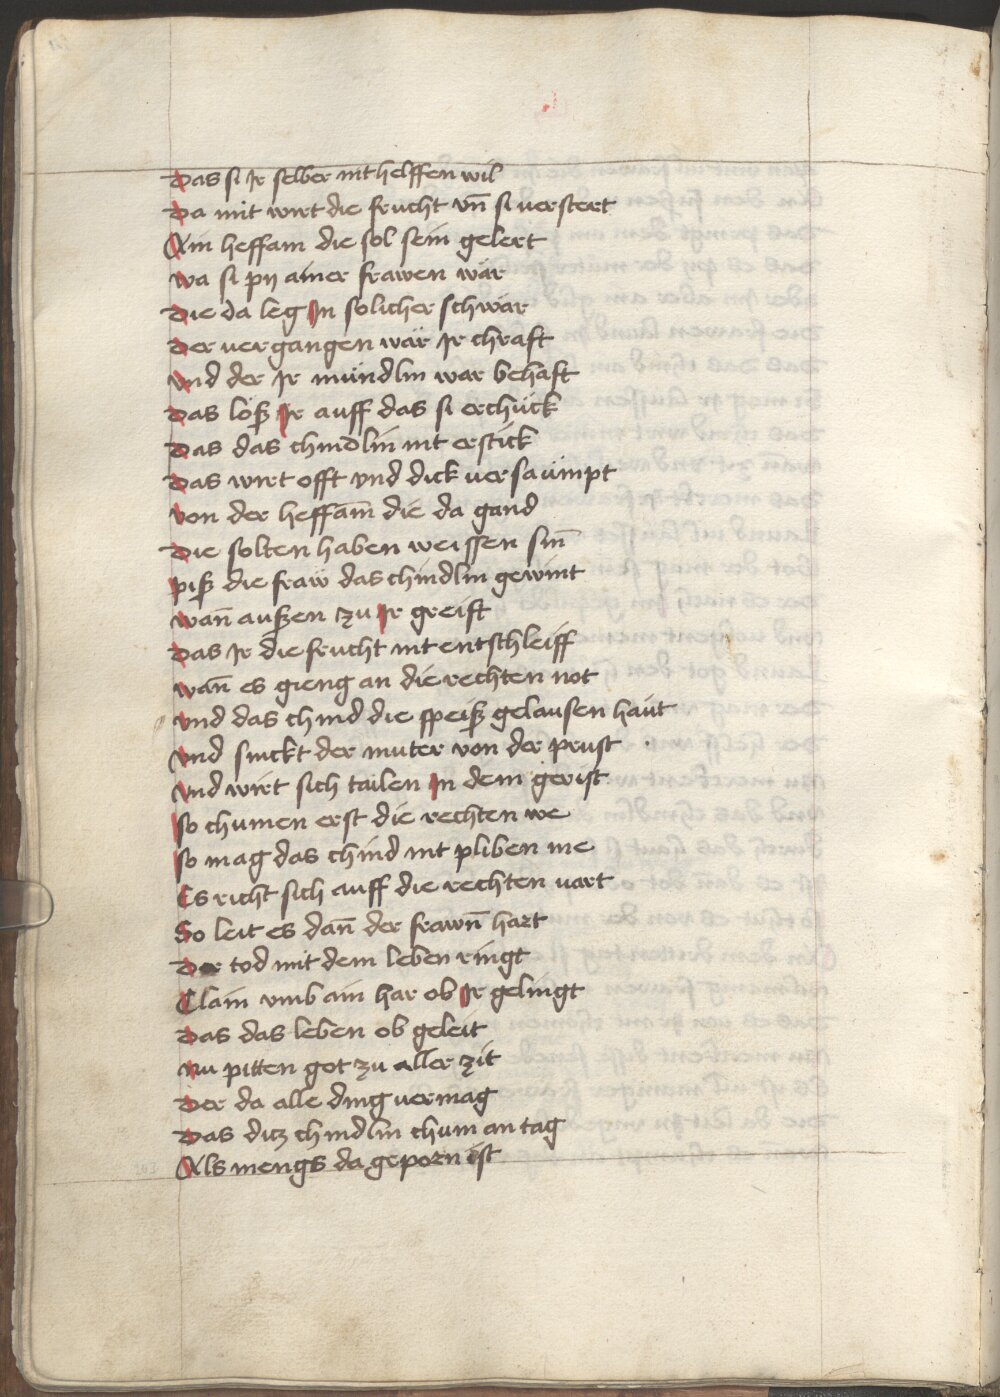 Das si Ir selber nit helffen wil
Da mit wirt die frucht vn̄ si verstert
Ain heffam die sol sein gelert
wa si pÿ ainer frawen wär
Die da leg In solicher schwär
Der vergangen wär Ir chraft
vnd der Ir mündlin war behaft
Das löß Ir auff das si erchück
Das das chindlin nit erstick
Das wirt offt vnd dick versaümpt
von der heffam̄ die da gand
Die solten haben weissen sin̄
piß die fraw das chindlin gewint
wan̄ außen zu Ir greift
Das Ir die frucht nit entschleiff
wan̄ es gieng an die rechten not
vnd das chind die speiß gelausen haut
vnd sinckt der muter von der prust
vnd wirt sich tailen In dem gerist
so chumen erst die rechten we
so mag das chind nit pliben me
Es richt sich auff die rechten vart
So leit es dan̄ der frawn̄ hart
Der tod mit dem leben ringt
Clain vmb ain har ob Ir gelingt
Das das leben ob geleit
nu pitten got zu aller zit
Der da alle ding vermag
Das ditz chindlin chum an tag
Als mengs da geporn ist